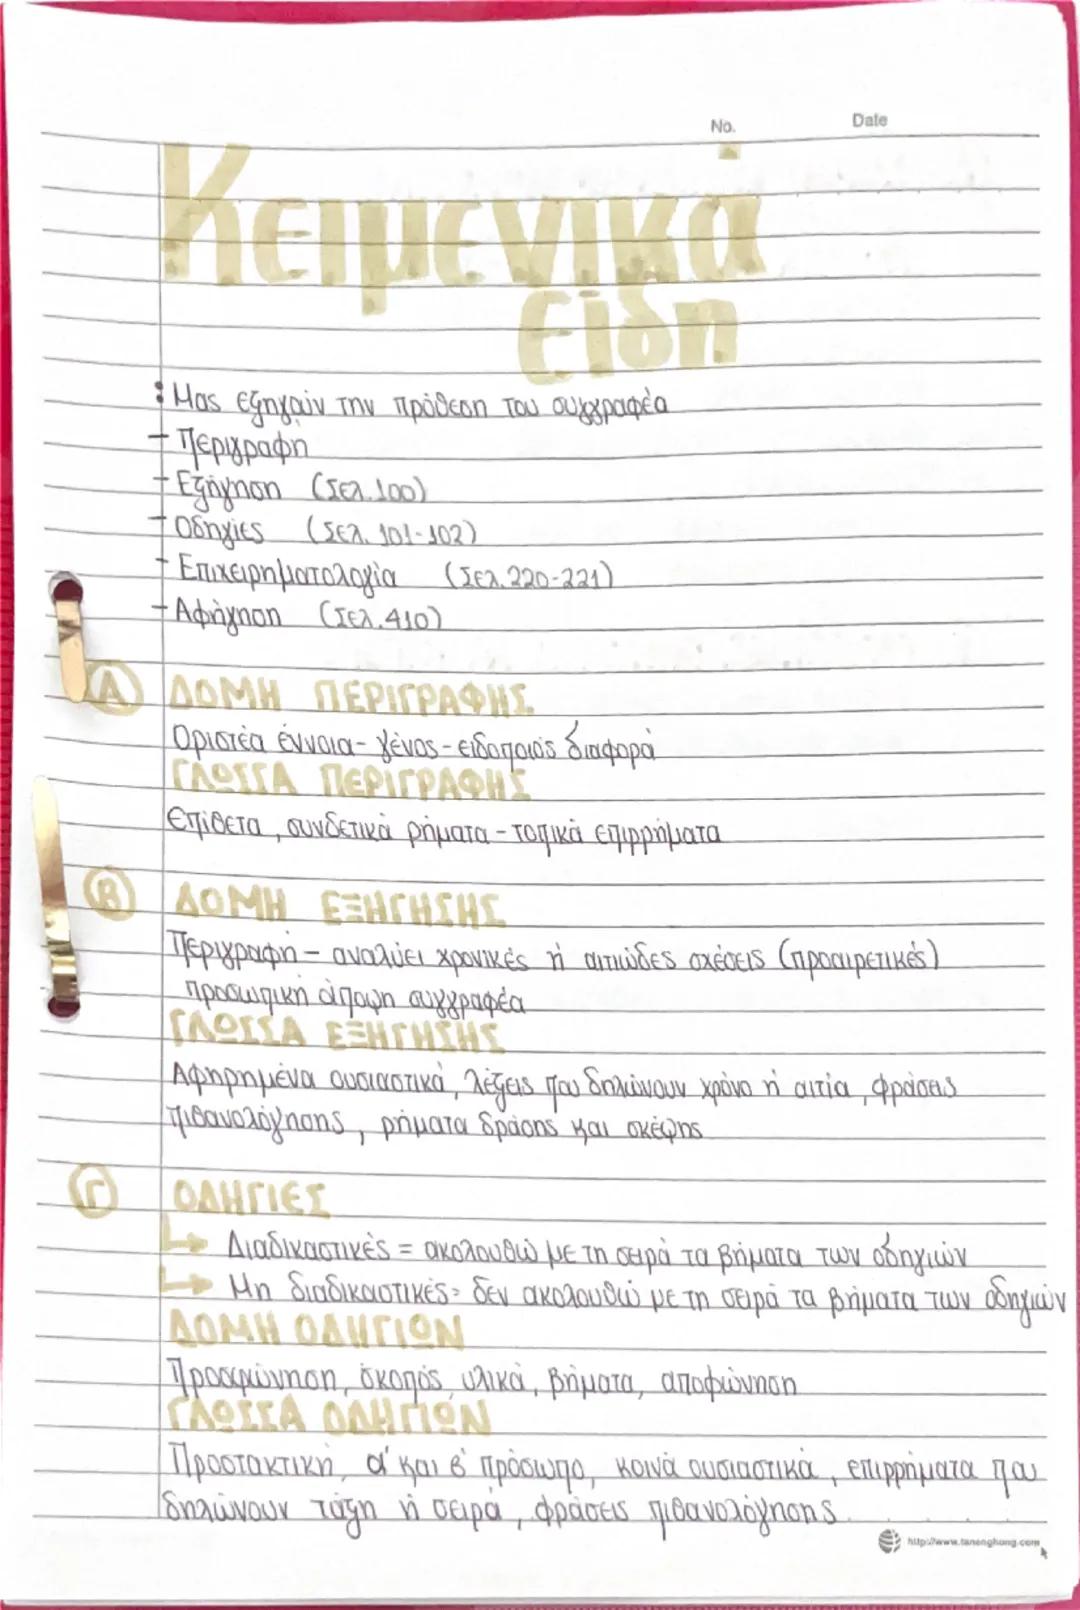 No.
Date
Κειμενικά
είδη
: Μας εξηγούν την πρόθεση του συγγραφέα
- Περιγραφή
- Εξήγηση (Σελ.100)
- Οδηγίες (Σελ. 101-102)
- Επιχειρηματολογία (Σελ.220-221)
- Αφήγηση (Σελ.410)
Α ΔΟΜΗ ΠΕΡΙΓΡΑΦΗΣ
Οριστέα έννοια - γένος - ειδοποιός διαφορά
ΓΛΩΣΣΑ ΠΕΡΙΓΡΑΦΗΣ
Επίθετα, συνδετικά ρήματα - τοπικά επιρρήματα
Β ΔΟΜΗ ΕΞΗΓΗΣΗΣ
Περιγραφή - αναλύει χρονικές ή αιτιώδες σχέσεις (προαιρετικές)
προσωπική άποψη συγγραφέα
ΓΛΩΣΣΑ ΕΞΗΓΗΣΗΣ
Αφηρημένα ουσιαστικά, λέξεις που δηλώνουν χρόνο ή αιτία, φράσεις
πιθανολόγησης, ρήματα δράσης και σκέψης
Γ ΟΔΗΓΙΕΣ
↳ Διαδικαστικές = ακολουθώ με τη σειρά τα βήματα των οδηγιών
↳ Μη διαδικαστικές = δεν ακολουθώ με τη σειρά τα βήματα των οδηγιών
ΔΟΜΗ ΟΔΗΓΙΩΝ
Προσφώνηση, σκοπός, υλικά, βήματα, αποφώνηση
ΓΛΩΣΣΑ ΟΔΗΓΙΩΝ
Προστακτική, α' και β' πρόσωπο, κοινά ουσιαστικά, επιρρήματα που
δηλώνουν τάξη ή σειρά, φράσεις πιθανολόγησης
http://www.tanenghong.com